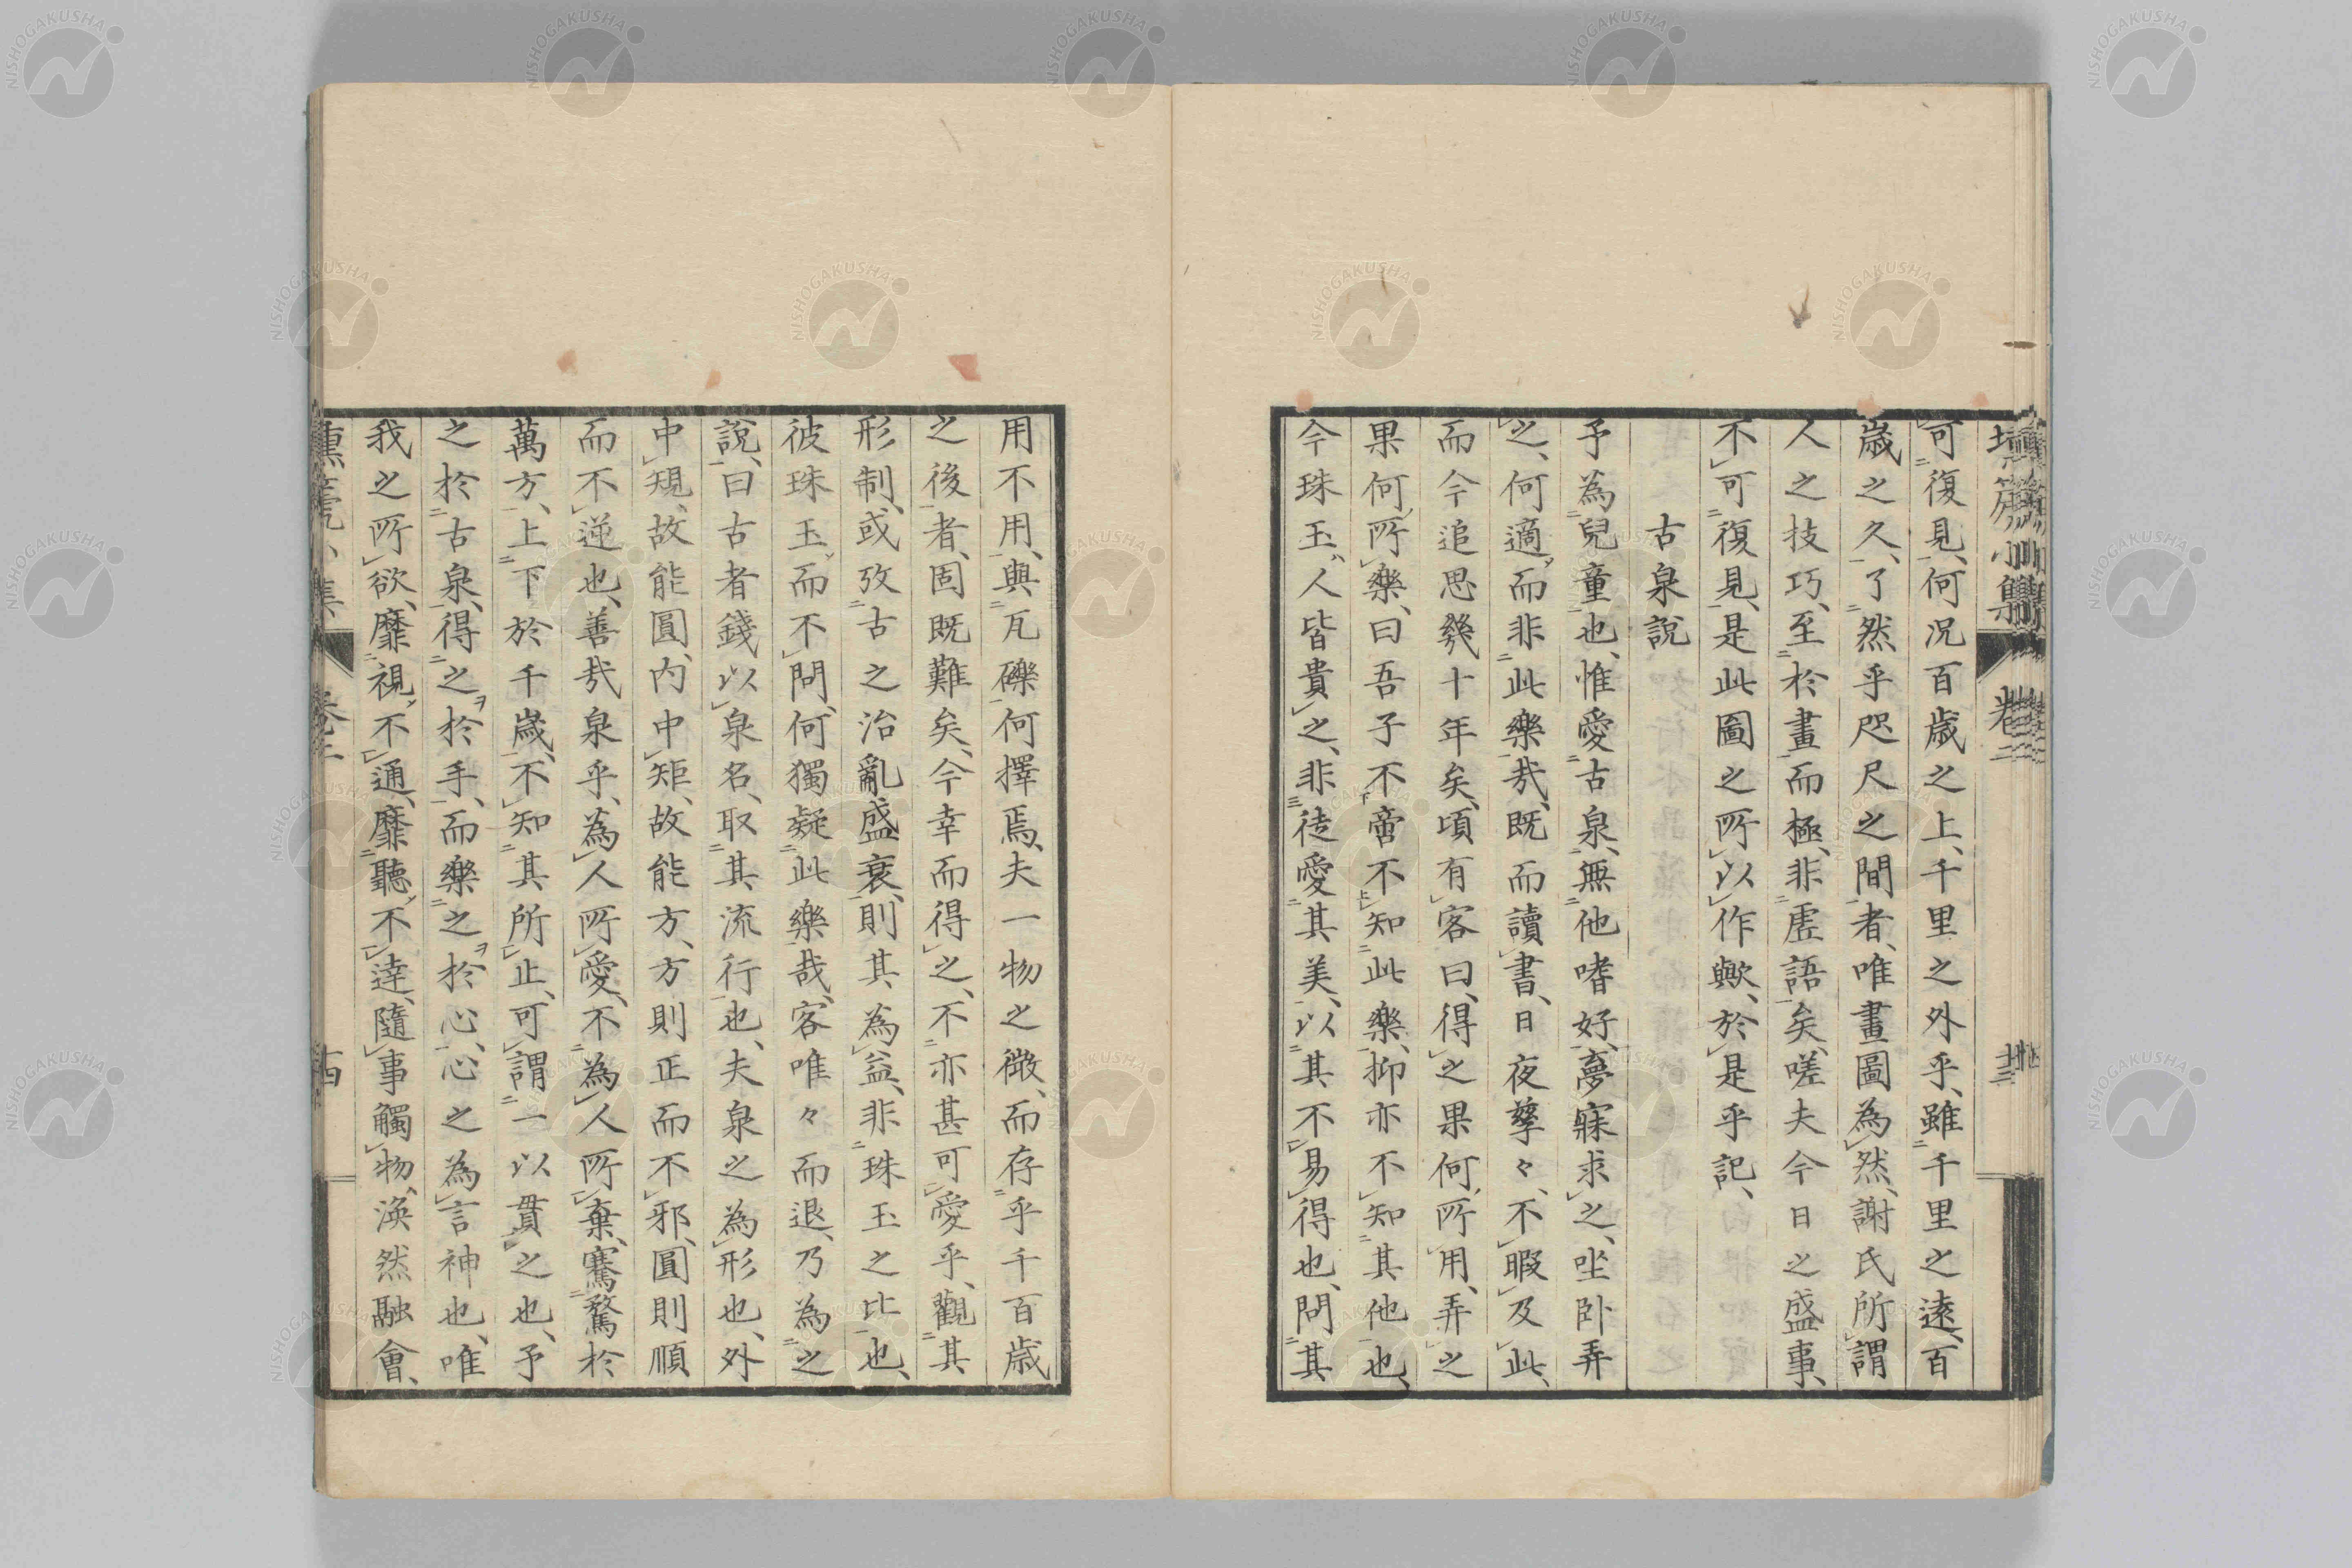 可復見、何況百歳之上、千里之外乎、雖千里之遠、百
歳之久、了然乎咫尺之間者、唯畫圖為然、謝氏所謂
人之技巧、至於畫而極、非虚語矣、嗟夫今日之盛事、
不可復見、是此圖之所以作歟、於是乎記、
古泉說
予為兒童也、惟愛古泉、無他嗜好、夢寐求之、坐卧弄
之、何適而非此樂哉、既而讀書、日夜孳々、不暇及此、
而今追思幾十年矣、頃有客曰、得之果何所用、弄之
果何所樂、曰吾子不啻不知此樂、抑亦不知其他也、
今珠玉、人皆貴之、非徒愛其美、以其不易得也、問其
用不用、與瓦礫何擇焉、夫一物之微、而存乎千百歳
之後者、固既難矣、今幸而得之、不亦甚可愛乎、觀其
形制、或攷古之治亂盛衰、則其為益、非珠玉之比也、
彼珠玉而不問、何獨疑此樂哉、客唯々而退、乃為之
說、曰古者錢以泉名、取其流行也、夫泉之為形也、外
中規、故能圓、内中矩、故能方、方則正而不邪、圓則順
而不逆也、善哉泉乎、為人所愛、不為人所棄、騫騖於
萬方、上下於千歳、不知其所止、可謂一以貫之也、予
之於古泉、得之於手、而樂之於心、心之為言神也、唯
我之所欲、靡視不通、靡聽不達、隨事觸物、渙然融會、
壎箎小集 卷二
十四
NISHOGAKUSHA